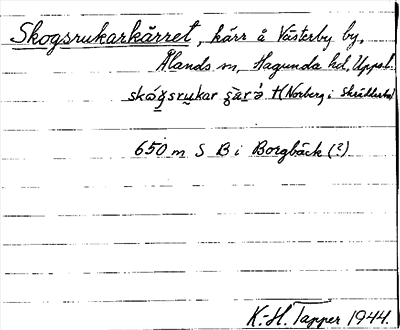 Skogsrukarkärret, kärr å Västerby by,
Ålands sn, Hagunda hd, Uppsl.
skogsrukar
(Norberg i
650 m S B i Borgbäck (?)
K.-H. Tapper 1944.